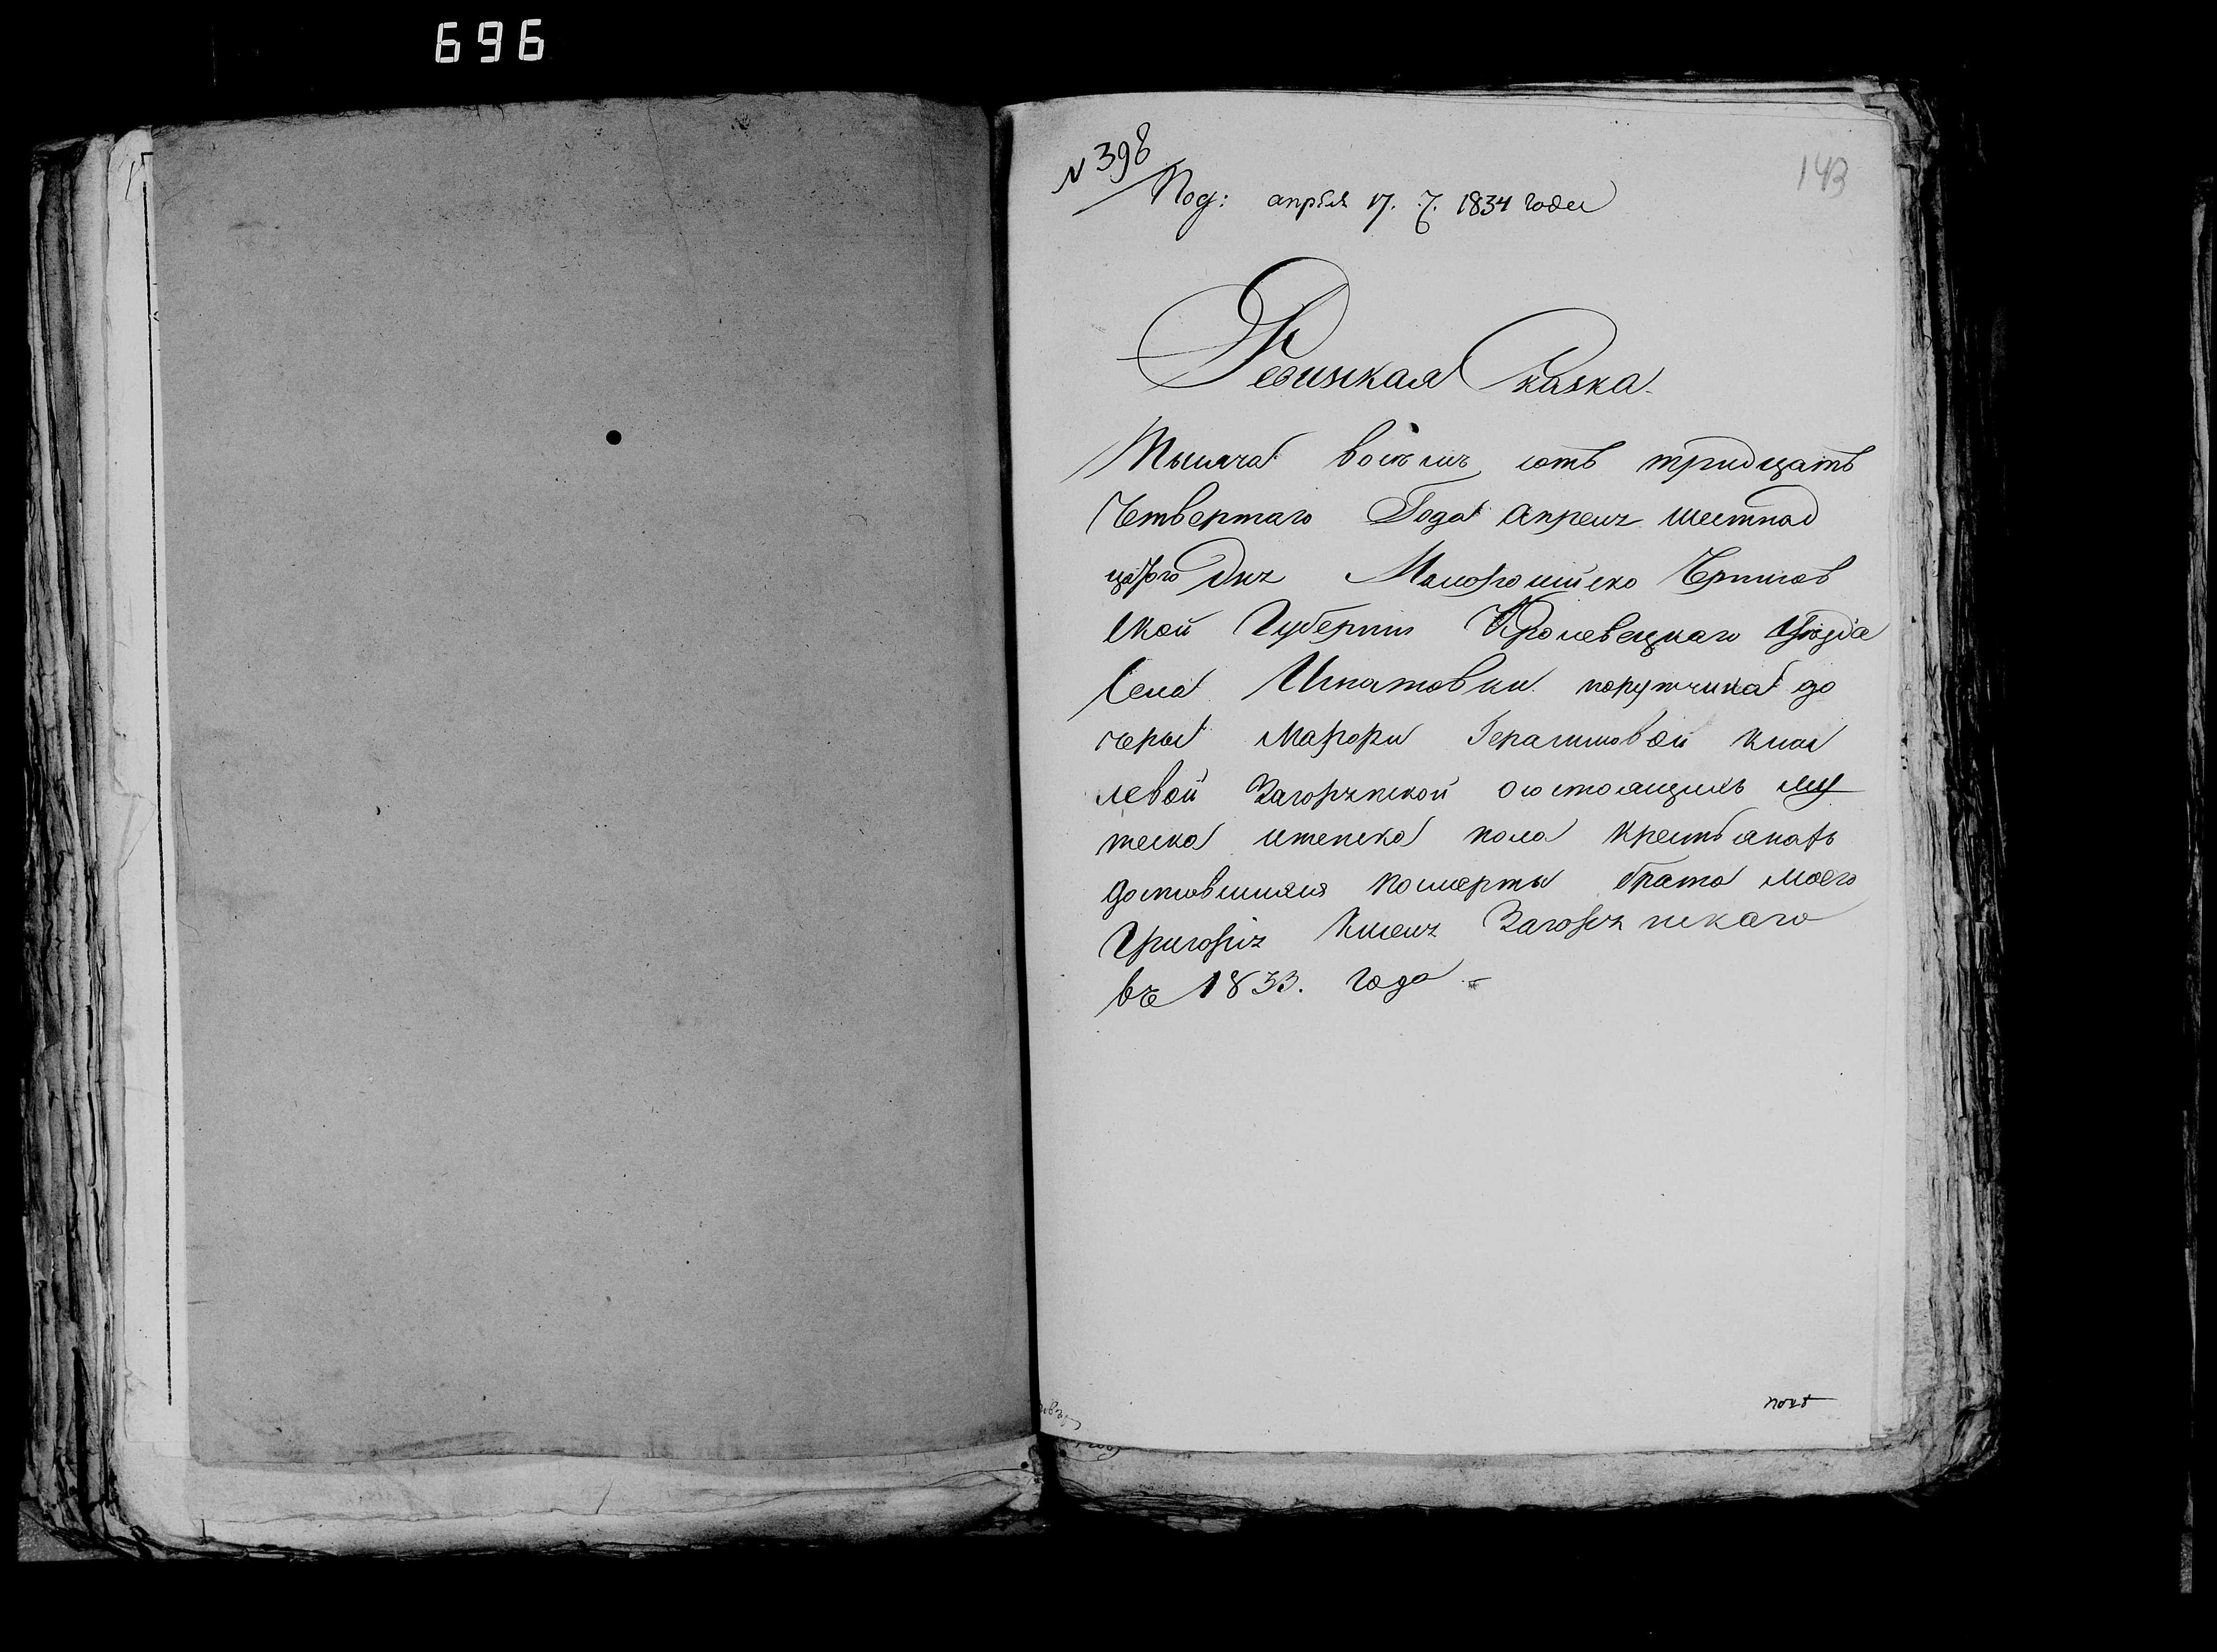 696
N 398
143
Под: апрѣля 17. 7. 1834 года
Ревиская Сказка
Тысяча восѣмъ сотъ тридцатъ
Четвертаго Года Апреля шестнад
цатого дня Малоросииско Чрнигов
ской Губернии Кролевецкаго уѣзда
Села Игнатовки порутчика до
черы Марфры Герасимовой Княз
левой Загорянской о состоящихъ му
жеска иженска пола крестьянахъ
доставшихся посмерты брата моего
Григория Князя Загорянскаго
въ 1833. года